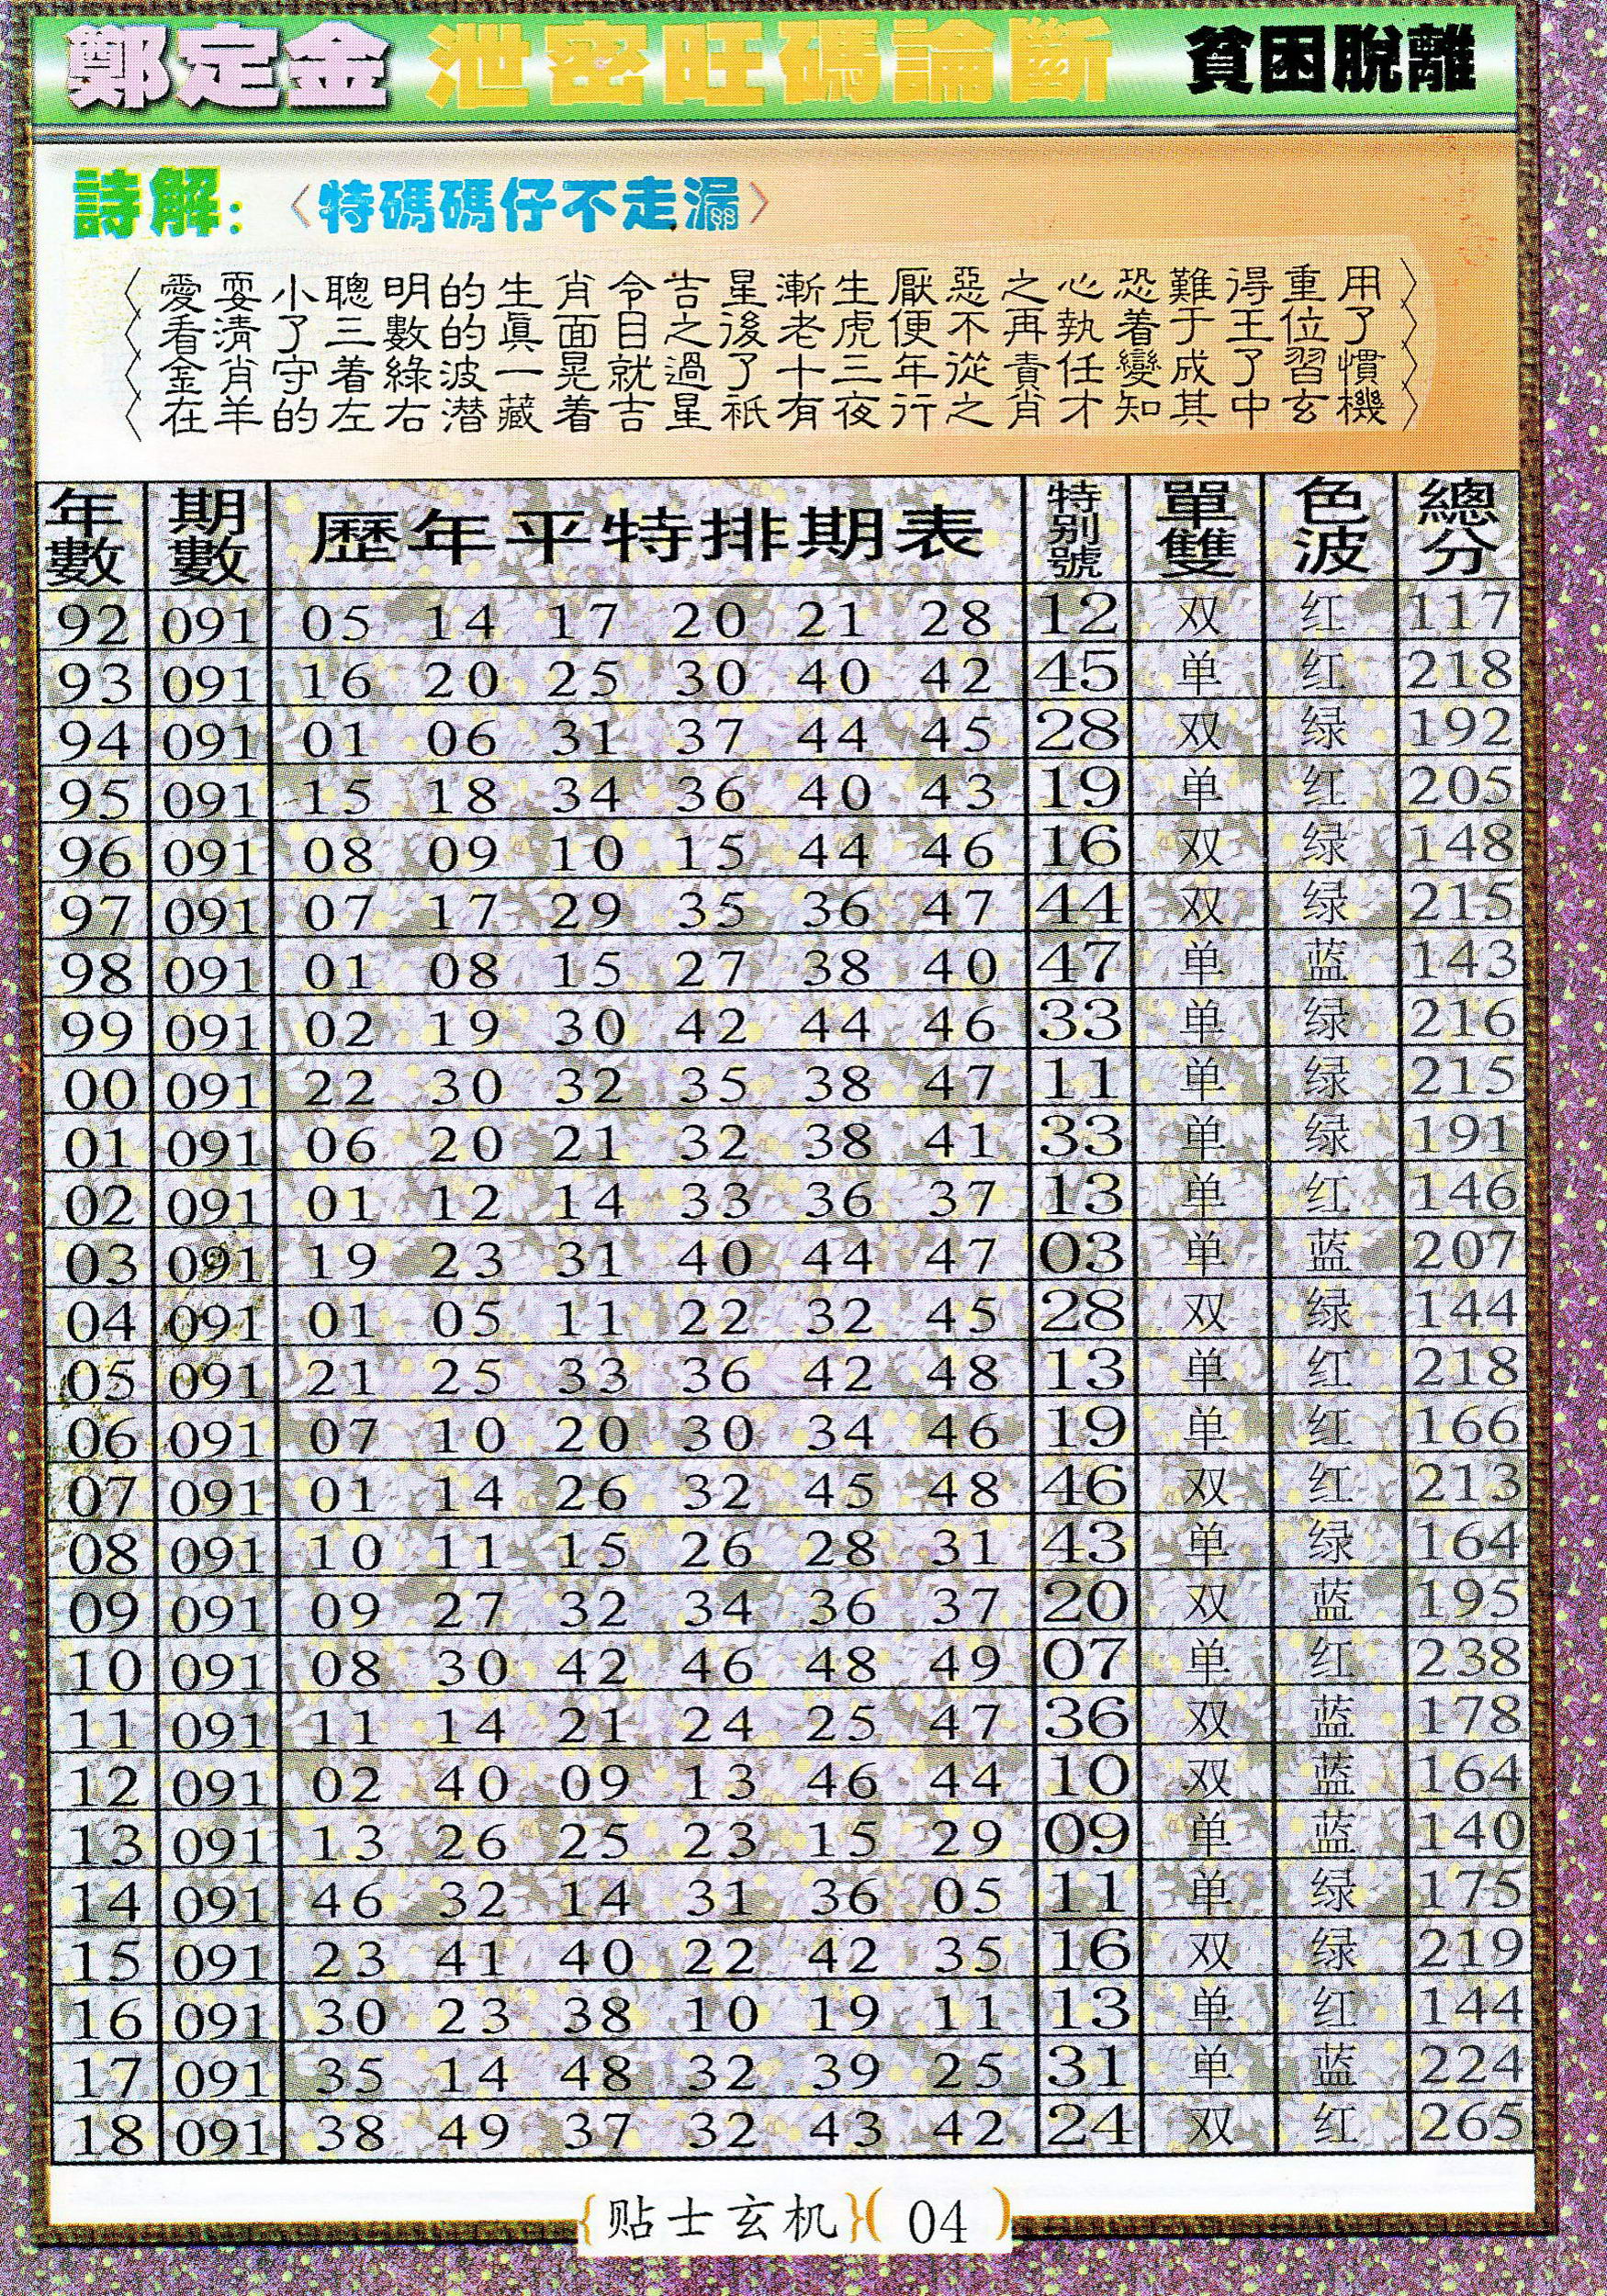 鄭定金 泄密旺碼論斷 貧困脫離
詩解：〈特碼碼仔不走漏〉
〈愛耍小聰明的生肖令吉星漸生厭惡之心恐難得重用〉
〈看清了三數的真面目之後老虎便不再執着于王位了〉
〈金肖守着綠波一晃就過了十三年從責任變成了習慣〉
〈在羊的左右潜藏着吉星祇有夜行之肖才知其中玄機〉
年數 期數 歷年平特排期表 特别號 單雙 色波 總分
92 091 05 14 17 20 21 28 12 双 红 117
93 091 16 20 25 30 40 42 45 单 红 218
94 091 01 06 31 37 44 45 28 双 绿 192
95 091 15 18 34 36 40 43 19 单 红 205
96 091 08 09 10 15 44 46 16 双 绿 148
97 091 07 17 29 35 36 47 44 双 绿 215
98 091 01 08 15 27 38 40 47 单 蓝 143
99 091 02 19 30 42 44 46 33 单 绿 216
00 091 22 30 32 35 38 47 11 单 绿 215
01 091 06 20 21 32 38 41 33 单 绿 191
02 091 01 12 14 33 36 37 13 单 红 146
03 091 19 23 31 40 44 47 03 单 蓝 207
04 091 01 05 11 22 32 45 28 双 绿 144
05 091 21 25 33 36 42 48 13 单 红 218
06 091 07 10 20 30 34 46 19 单 红 166
07 091 01 14 26 32 45 48 46 双 红 213
08 091 10 11 15 26 28 31 43 单 绿 164
09 091 09 27 32 34 36 37 20 双 蓝 195
10 091 08 30 42 46 48 49 07 单 红 238
11 091 11 14 21 24 25 47 36 双 蓝 178
12 091 02 40 09 13 46 44 10 双 蓝 164
13 091 13 26 25 23 15 29 09 单 蓝 140
14 091 46 32 14 31 36 05 11 单 绿 175
15 091 23 41 40 22 42 35 16 双 绿 219
16 091 30 23 38 10 19 11 13 单 红 144
17 091 35 14 48 32 39 25 31 单 蓝 224
18 091 38 49 37 32 43 42 24 双 红 265
{贴士玄机}(04)